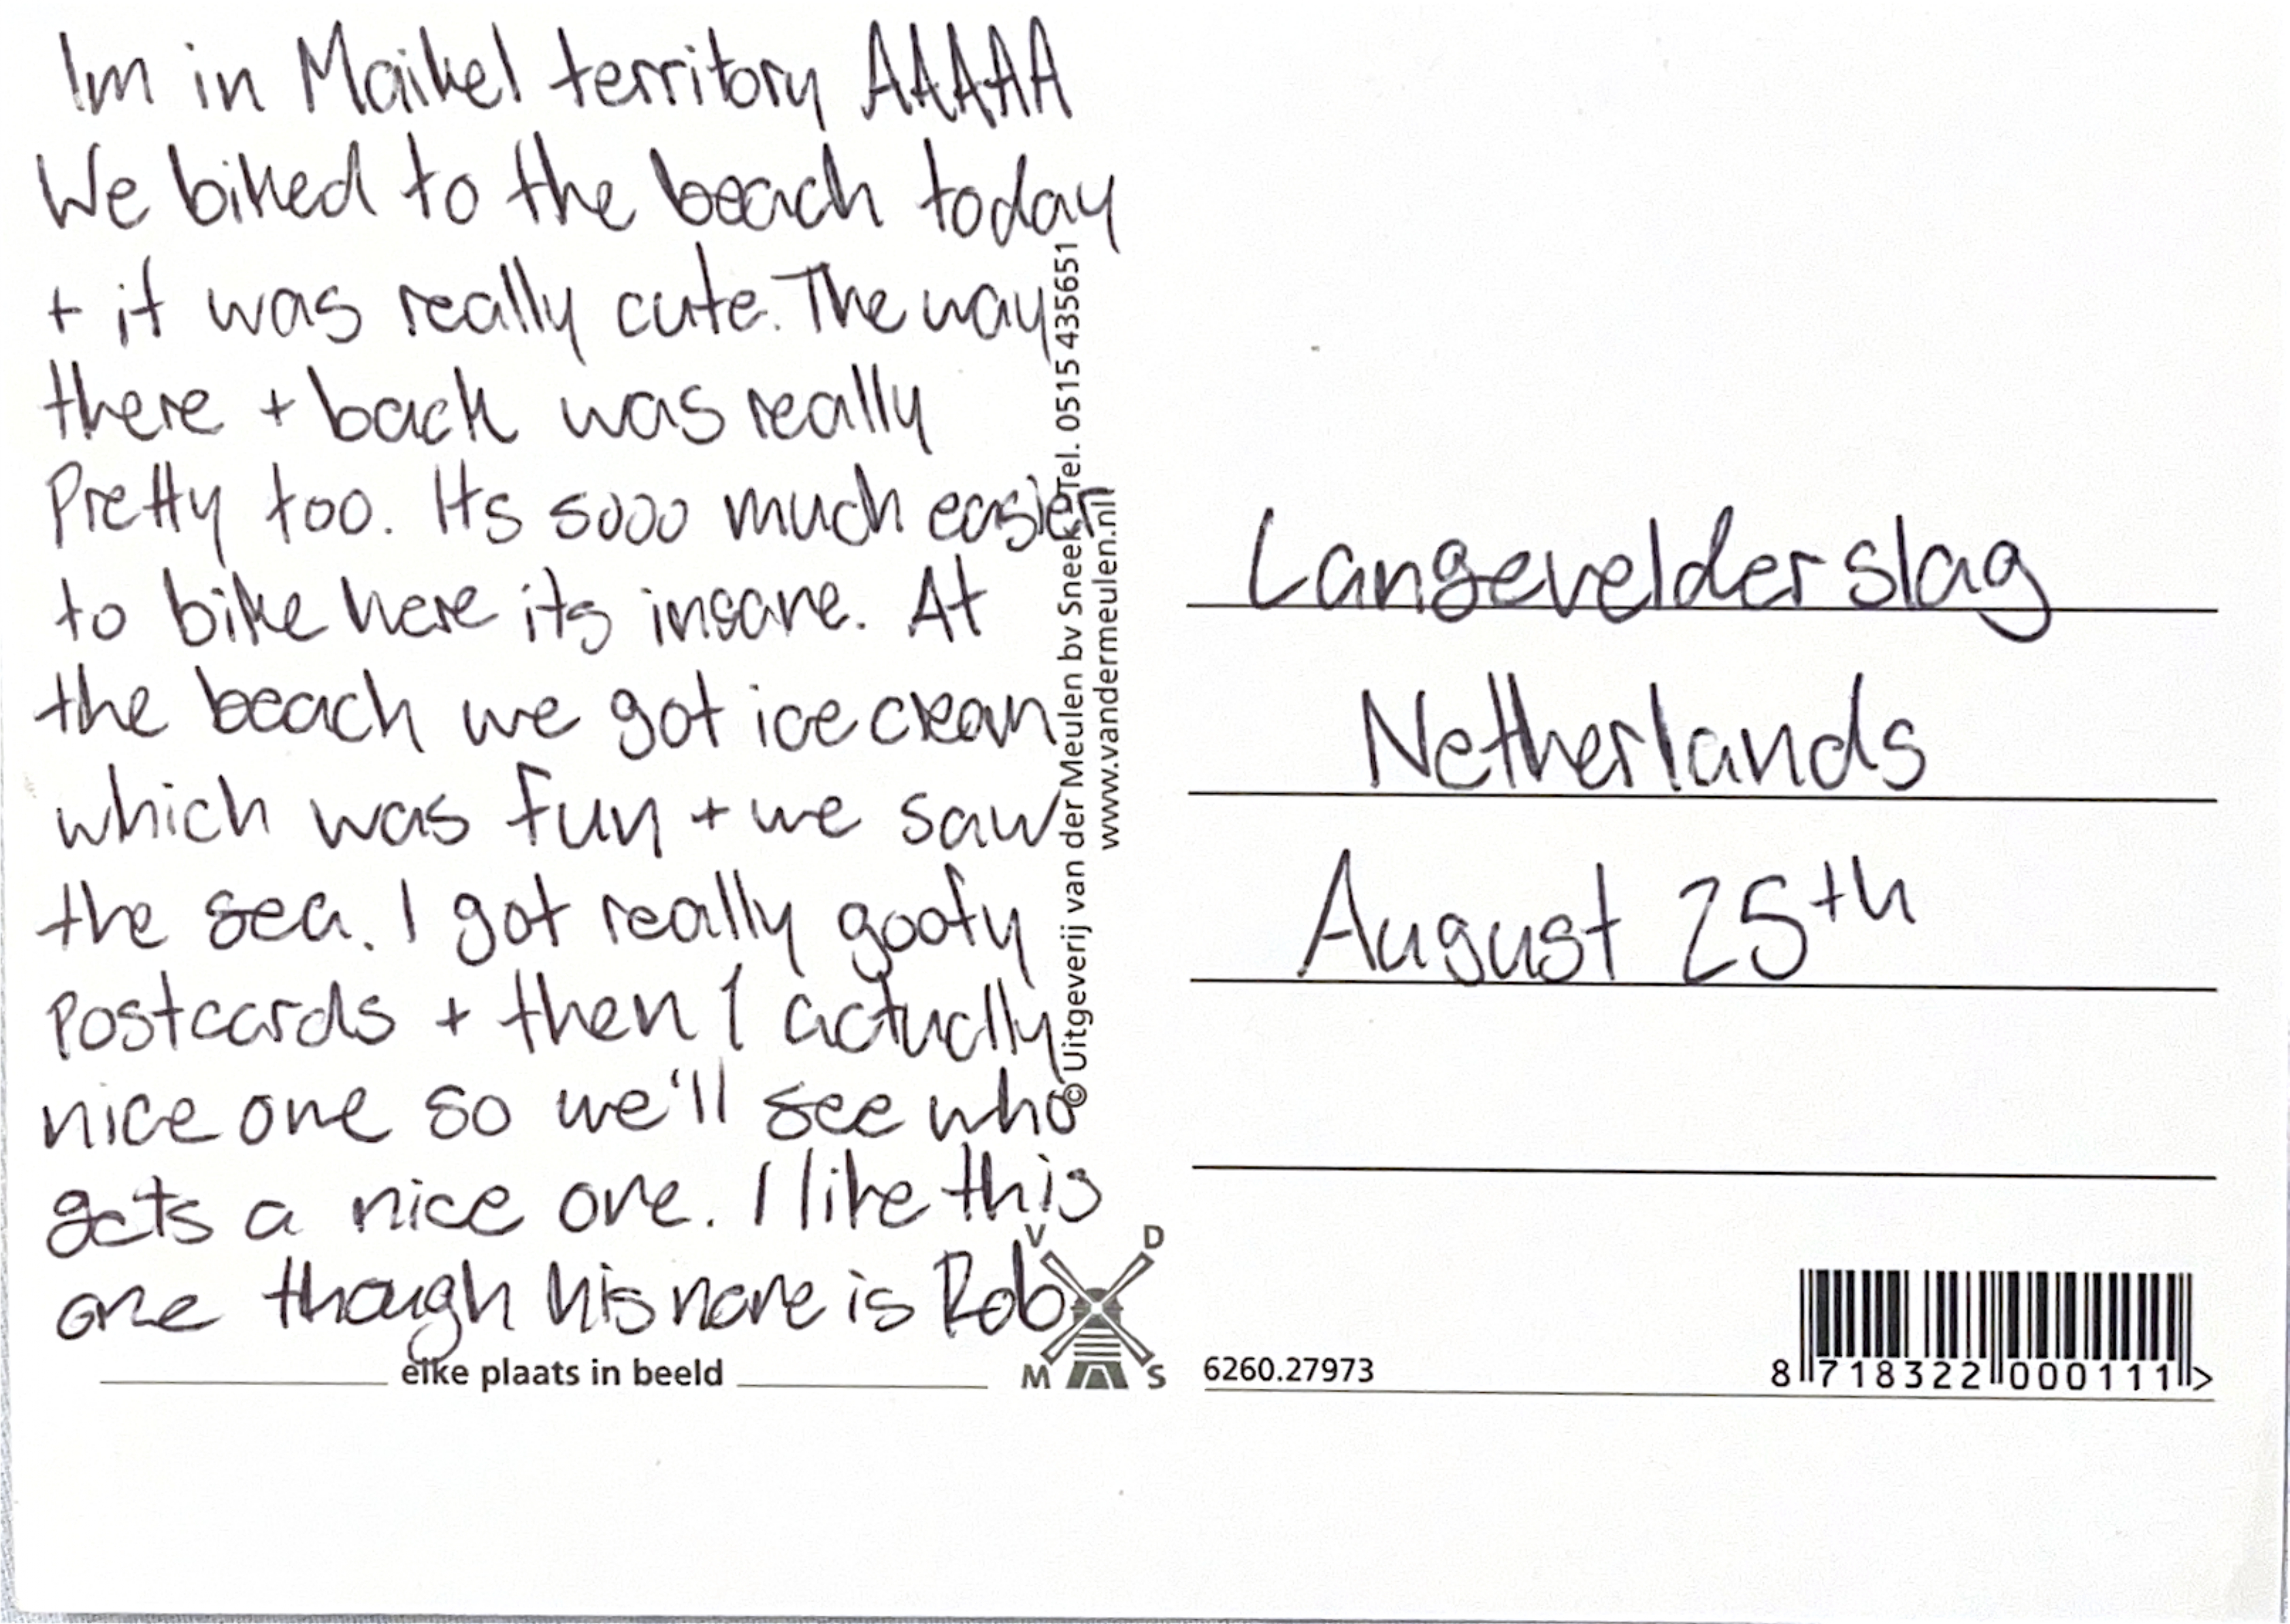 Im in Maikel territory AAAAA
We biked to the beach today
+ it was really cute. The way
there + back was really
Pretty too. Its sooo much easier
to bike here its insane. At
the beach we got ice cream
which was fun + we saw
the sea. I got really goofy
postcards + then 1 actually
nice one so we'll see who
gets a nice one. I like this
one though his name is Rob
elke plaats in beeld
© Uitgeverij van der Meulen bv Sneek Tel. 0515 435651
www.vandermeulen.nl
V D
M S
Langevelderslag
Netherlands
August 25th
6260.27973
8 718322 000111 >